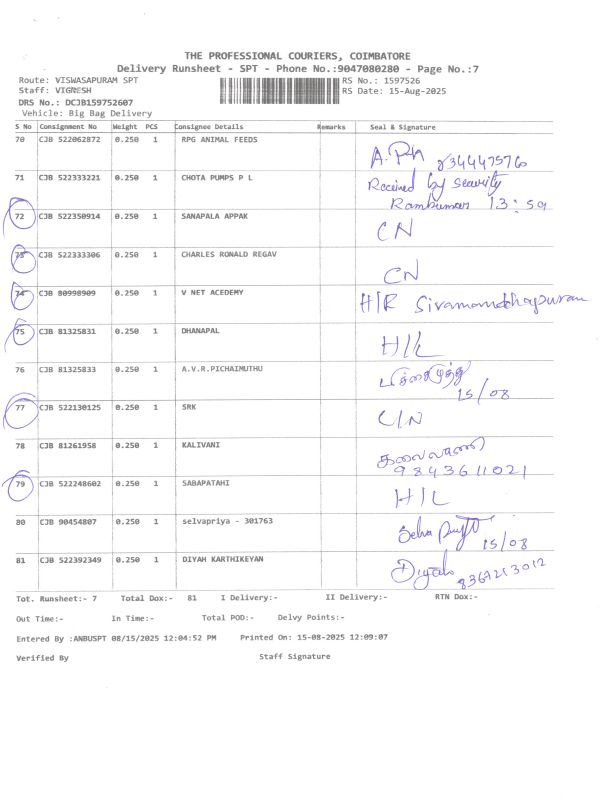 THE PROFESSIONAL COURIERS, COIMBATORE
Delivery Runsheet - SPT - Phone No.:9047080280 - Page No.:7
Route: VISWASAPURAM SPT RS No.: 1597526
Staff: VIGNESH RS Date: 15-Aug-2025
DRS No.: DCJB159752607
Vehicle: Big Bag Delivery
S No Consignment No Weight PCS Consignee Details Remarks Seal & Signature
70 CJB 522062872 0.250 1 RPG ANIMAL FEEDS
71 CJB 522333221 0.250 1 CHOTA PUMPS P L Received by security
Ramkumar 13:59
72 CJB 522350914 0.250 1 SANAPALA APPAK CN
73 CJB 522333306 0.250 1 CHARLES RONALD REGAV CN
74 CJB 80998909 0.250 1 V NET ACEDEMY H/R
75 CJB 81325831 0.250 1 DHANAPAL H/L
76 CJB 81325833 0.250 1 A.V.R.PICHAIMUTHU பிச்சைமுத்து
15/08
77 CJB 522130125 0.250 1 SRK C/N
78 CJB 81261958 0.250 1 KALIVANI கலைவாணி
9843611021
79 CJB 522248602 0.250 1 SABAPATAHI H/L
80 CJB 90454807 0.250 1 selvapriya - 301763 Selva
15/08
81 CJB 522392349 0.250 1 DIYAH KARTHIKEYAN
Tot. Runsheet:- 7 Total Dox:- 81 I Delivery:- II Delivery:- RTN Dox:-
Out Time:- In Time:- Total POD:- Delvy Points:-
Entered By :ANBUSPT 08/15/2025 12:04:52 PM Printed On: 15-08-2025 12:09:07
Verified By Staff Signature